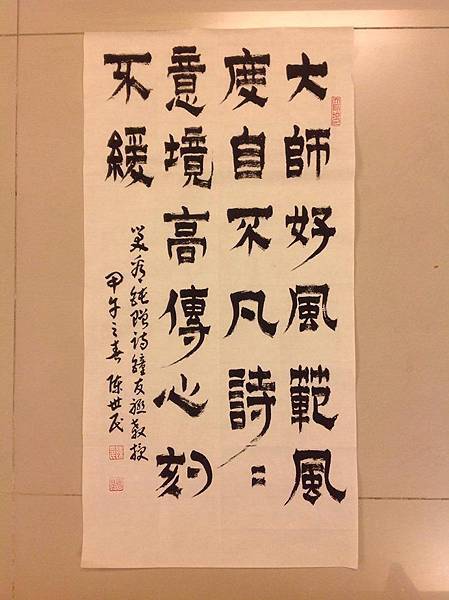 大師好風範風
度自不凡詩〻
意境高傳心刻
不緩
純贈詩鐘友聯教授
甲午之春 陳世民